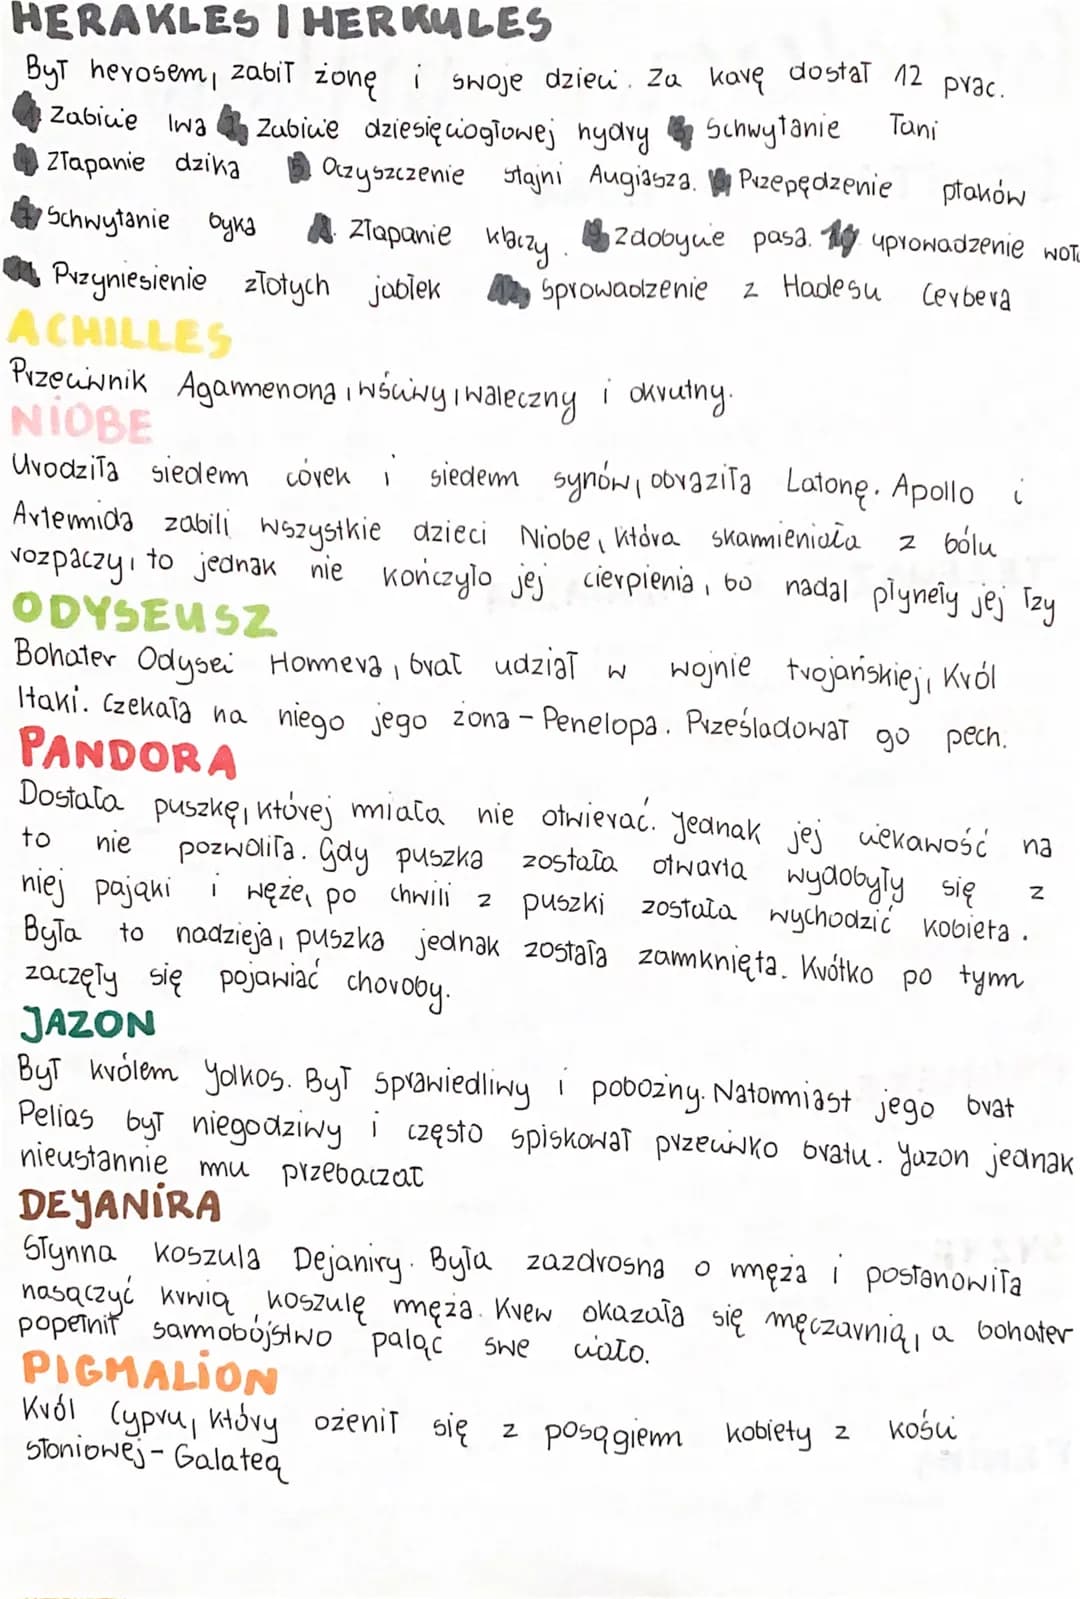 HERAKLES I HERKULES
Był herosem, zabił żonę i swoje dzieci. Za karę dostał 12 prac.
1. Zabicie lwa 2. Zabicie dziesięciogłowej hydry 3. Schwytanie Łani
4. Złapanie dzika 5. Oczyszczenie stajni Augiasza. 6. Przepędzenie ptaków
7. Schwytanie byka 8. Złapanie klaczy. 9. Zdobycie pasa. 10. uprowadzenie woł
11. Przyniesienie złotych jabłek 12. Sprowadzenie z Hadesu Cerbera
ACHILLES
Przeciwnik Agamenona, wściwy, waleczny i okrutny.
NIOBE
Urodziła siedem córek i siedem synów, obraziła Latonę. Apollo i
Artemida zabili wszystkie dzieci Niobe, która skamieniała z bólu
rozpaczy, to jednak nie kończyło jej cierpienia, bo nadal płyneły jej łzy
ODYSEUSZ
Bohater Odysei Homera, brał udział w wojnie trojańskiej, Król
Itaki. Czekała na niego jego żona - Penelopa. Prześladował go pech.
PANDORA
Dostała puszkę, której miała nie otwierać. Jednak jej ciekawość na
to nie pozwoliła. Gdy puszka została otwarta wydobyły się z
niej pająki i węże, po chwili z puszki została wychodzić kobieta.
Była to nadzieja, puszka jednak została zamknięta. Krótko po tym
zaczęły się pojawiać choroby.
JAZON
Był królem Jolkos. Był sprawiedliwy i pobożny. Natomiast jego brat
Pelias był niegodziwy i często spiskował przeciwko bratu. Jazon jednak
nieustannie mu przebaczał
DEJANIRA
Słynna koszula Dejaniry. Była zazdrosna o męża i postanowiła
nasączyć krwią koszulę męża. Krew okazała się męczarnią, a bohater
popełnił samobójstwo paląc swe ciało.
PIGMALION
Król Cypru, który ożenił się z posągiem kobiety z kości
słoniowej - Galateą